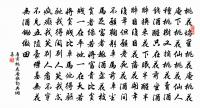 桃花塢裏桃花庵桃花
庵下桃花仙桃花仙人
種桃樹又摘桃花換酒
錢酒醒只在花前坐酒
醉還來花下眠半醒半
醉日復日花落花開年
復年但願老死花酒間
不願鞠躬車馬前車塵
馬足富者趣酒盞花枝
貧者緣若將富貴比貧
賤一在平地一在天若
將貧賤比車馬他得驅
馳我得閑別人笑我太
瘋癲我笑他人看不穿
不見五陵豪傑墓無花
無酒鋤作田